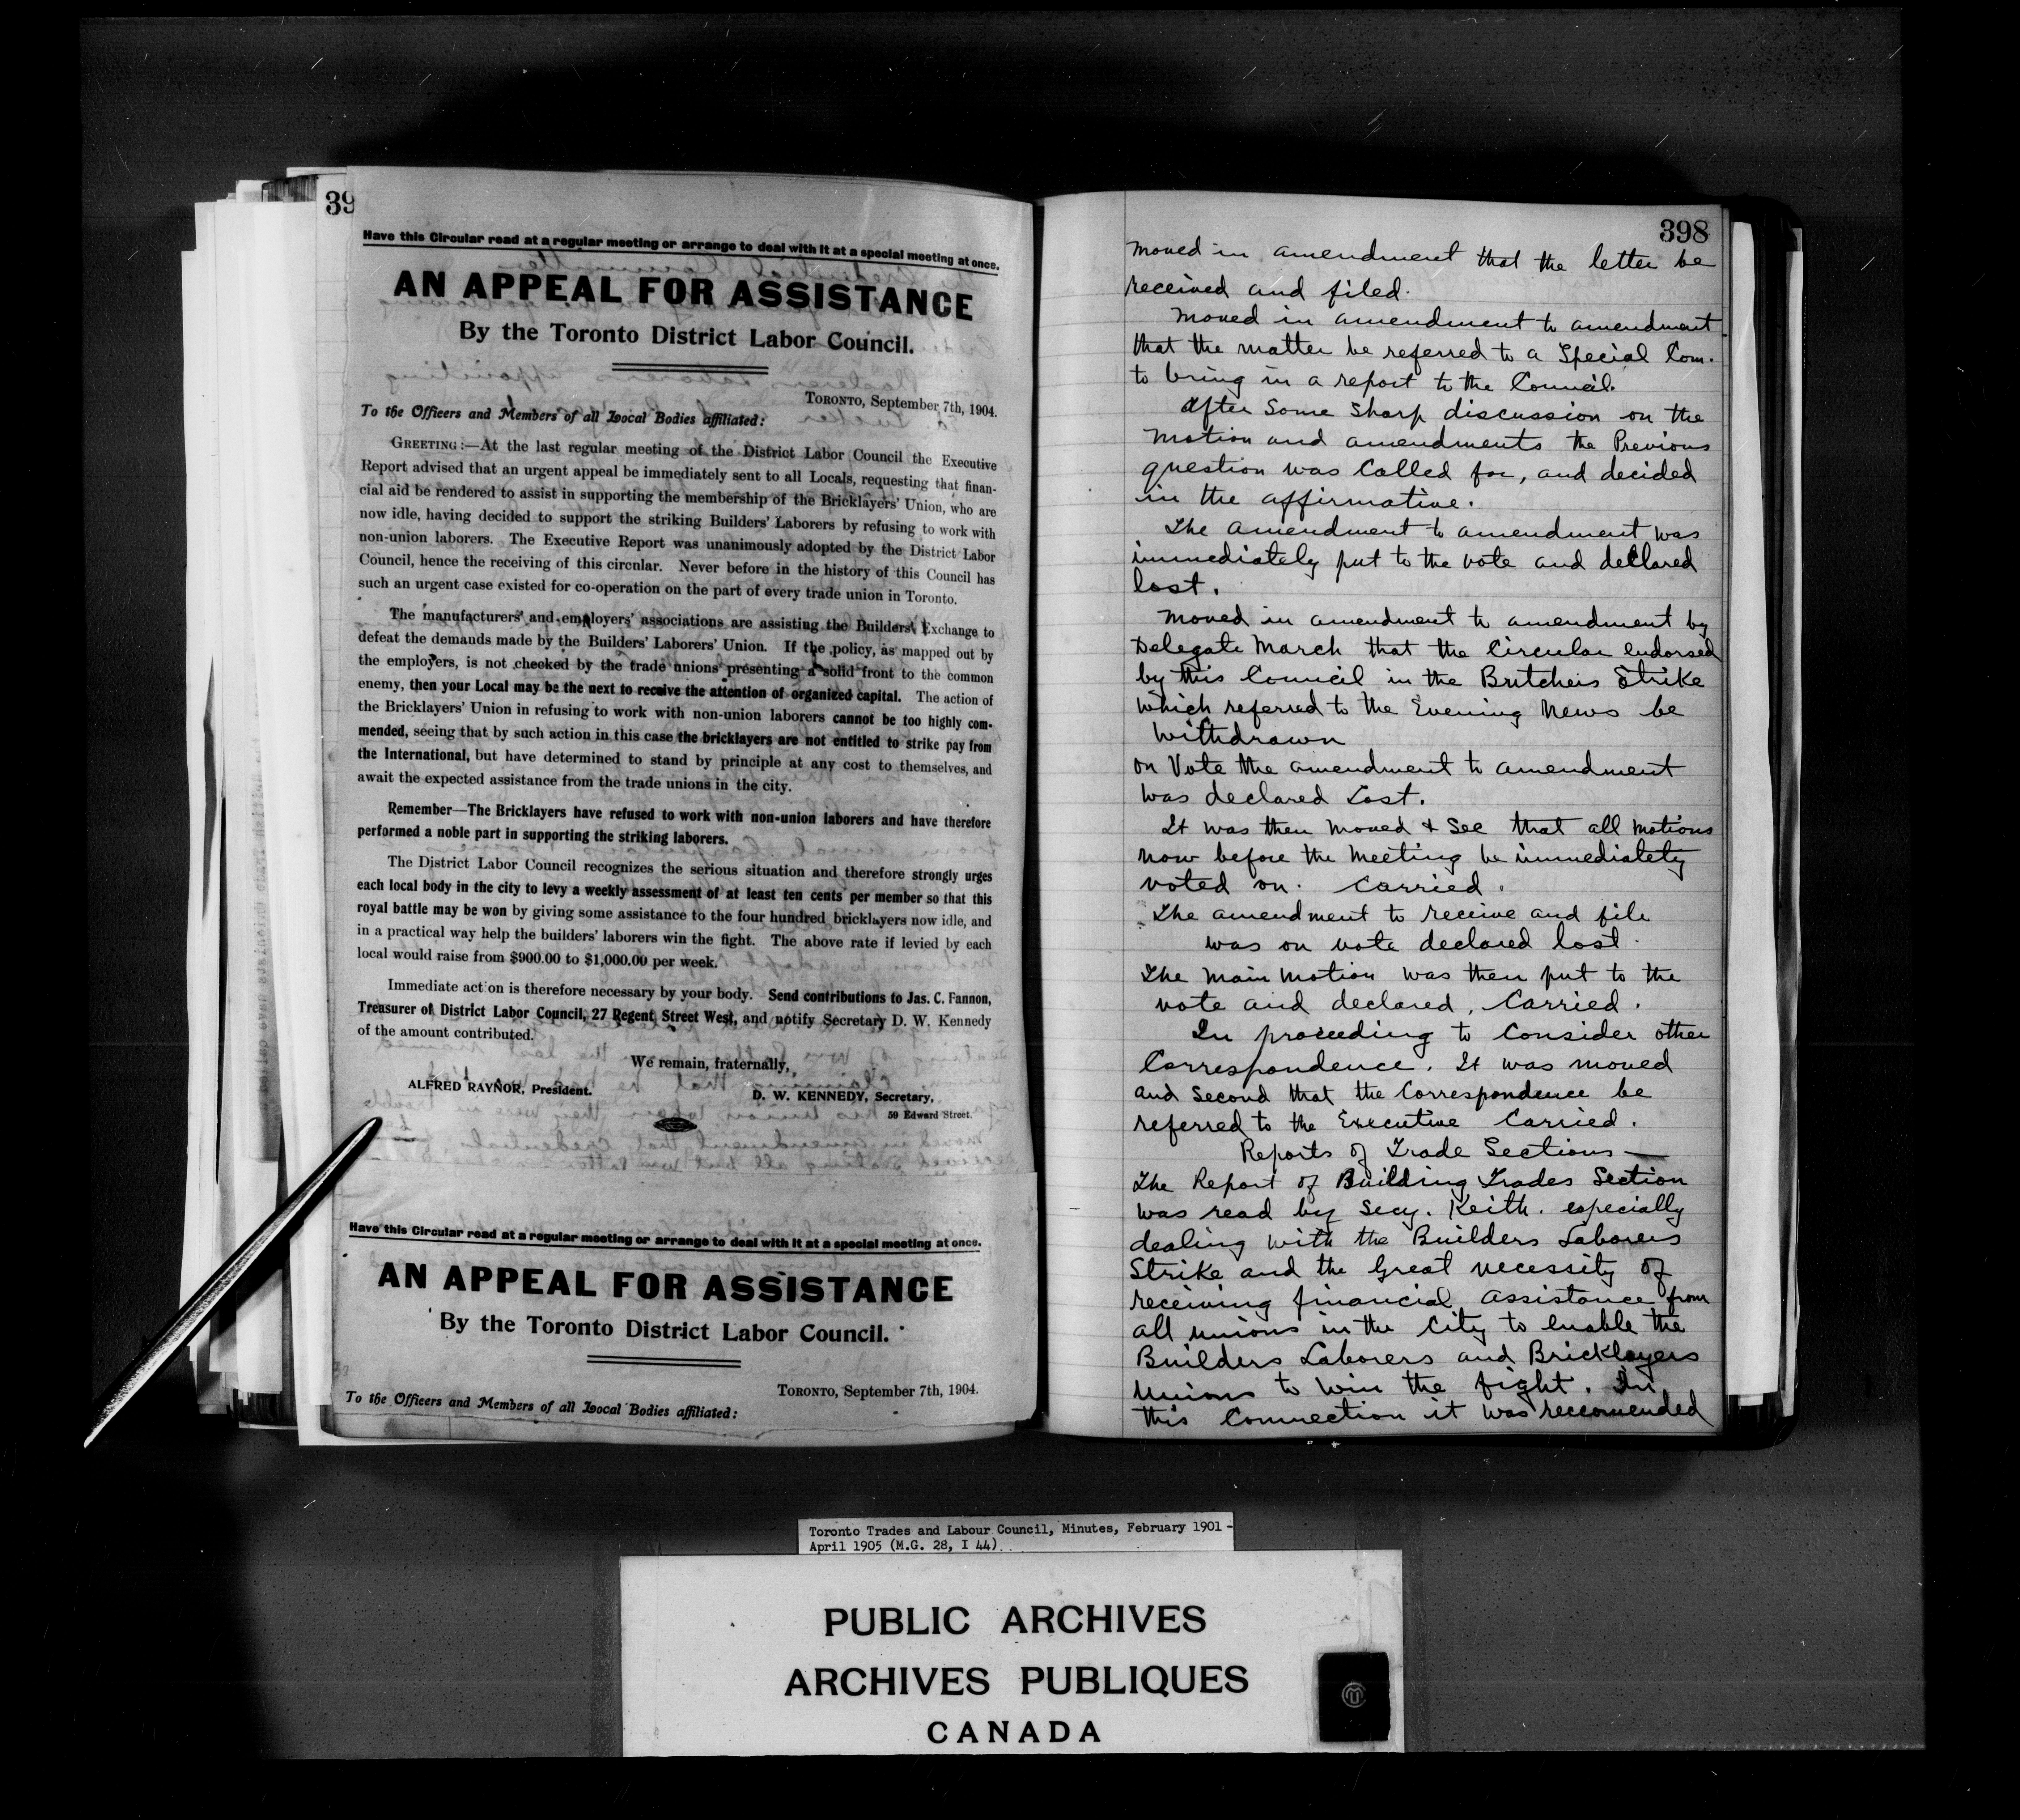 39
Have this Circular read at a regular meeting or arrange to deal with it at a special meeting at once.
AN APPEAL FOR ASSISTANCE
By the Toronto District Labor Council.
TORONTO, September 7th, 1904.
To the Officers and Members of all Local Bodies affiliated:
GREETING:—At the last regular meeting of the District Labor Council the Executive
Report advised that an urgent appeal be immediately sent to all Locals, requesting that finan-
cial aid be rendered to assist in supporting the membership of the Bricklayers' Union, who are
now idle, having decided to support the striking Builders' Laborers by refusing to work with
non-union laborers. The Executive Report was unanimously adopted by the District Labor
Council, hence the receiving of this circular. Never before in the history of this Council has
such an urgent case existed for co-operation on the part of every trade union in Toronto.
The manufacturers' and employers' associations are assisting the Builders' Exchange to
defeat the demands made by the Builders' Laborers' Union. If the policy, as mapped out by
the employers, is not checked by the trade unions presenting a solid front to the common
enemy, then your Local may be the next to receive the attention of organized capital. The action of
the Bricklayers' Union in refusing to work with non-union laborers cannot be too highly com-
mended, seeing that by such action in this case the bricklayers are not entitled to strike pay from
the International, but have determined to stand by principle at any cost to themselves, and
await the expected assistance from the trade unions in the city.
Remember—The Bricklayers have refused to work with non-union laborers and have therefore
performed a noble part in supporting the striking laborers.
The District Labor Council recognizes the serious situation and therefore strongly urges
each local body in the city to levy a weekly assessment of at least ten cents per member so that this
royal battle may be won by giving some assistance to the four hundred bricklayers now idle, and
in a practical way help the builders' laborers win the fight. The above rate if levied by each
local would raise from $900.00 to $1,000.00 per week.
Immediate action is therefore necessary by your body. Send contributions to Jas. C. Fannon,
Treasurer of District Labor Council, 27 Regent Street West, and notify Secretary D. W. Kennedy
of the amount contributed.
We remain, fraternally,
ALFRED RAYNOR, President.
D. W. KENNEDY, Secretary,
50 Edward Street.
Have this Circular read at a regular meeting or arrange to deal with it at a special meeting at once.
AN APPEAL FOR ASSISTANCE
By the Toronto District Labor Council.
TORONTO, September 7th, 1904.
To the Officers and Members of all Local Bodies affiliated:
398
moved in amendment that the letter be
received and filed.
Moved in amendment to amendment
that the matter be referred to a Special Com.
to bring in a report to the Council.
After Some Sharp discussion on the
Motion and amendments the Previous
question was Called for, and decided
in the affirmative.
The Amendment to amendment was
immediately put to the vote and declared
lost.
Moved in amendment to amendment by
Delegate March that the Circular endorsed
by this Council in the Butchers Strike
which referred to the Evening News be
Withdrawn
on Vote the amendment to amendment
was declared Lost.
It was then Moved & Sec that all Motions
now before the Meeting be immediately
voted on. Carried.
The amendment to receive and file
was on vote declared lost.
The Main Motion was then put to the
vote and declared, Carried.
In proceeding to Consider other
Correspondence. It was moved
and Second that the Correspondence be
referred to the Executive Carried.
Reports of Trade Sections —
The Report of Building Trades Section
was read by Secy. Keith. especially
dealing with the Builders Laborers
Strike and the Great necessity of
receiving financial assistance from
all unions in the City to enable the
Builders Laborers and Bricklayers
Unions to win the fight. In
this Connection it was reccomended
Toronto Trades and Labour Council, Minutes, February 1901 -
April 1905 (M.G. 28, I 44)
PUBLIC ARCHIVES
ARCHIVES PUBLIQUES
CANADA